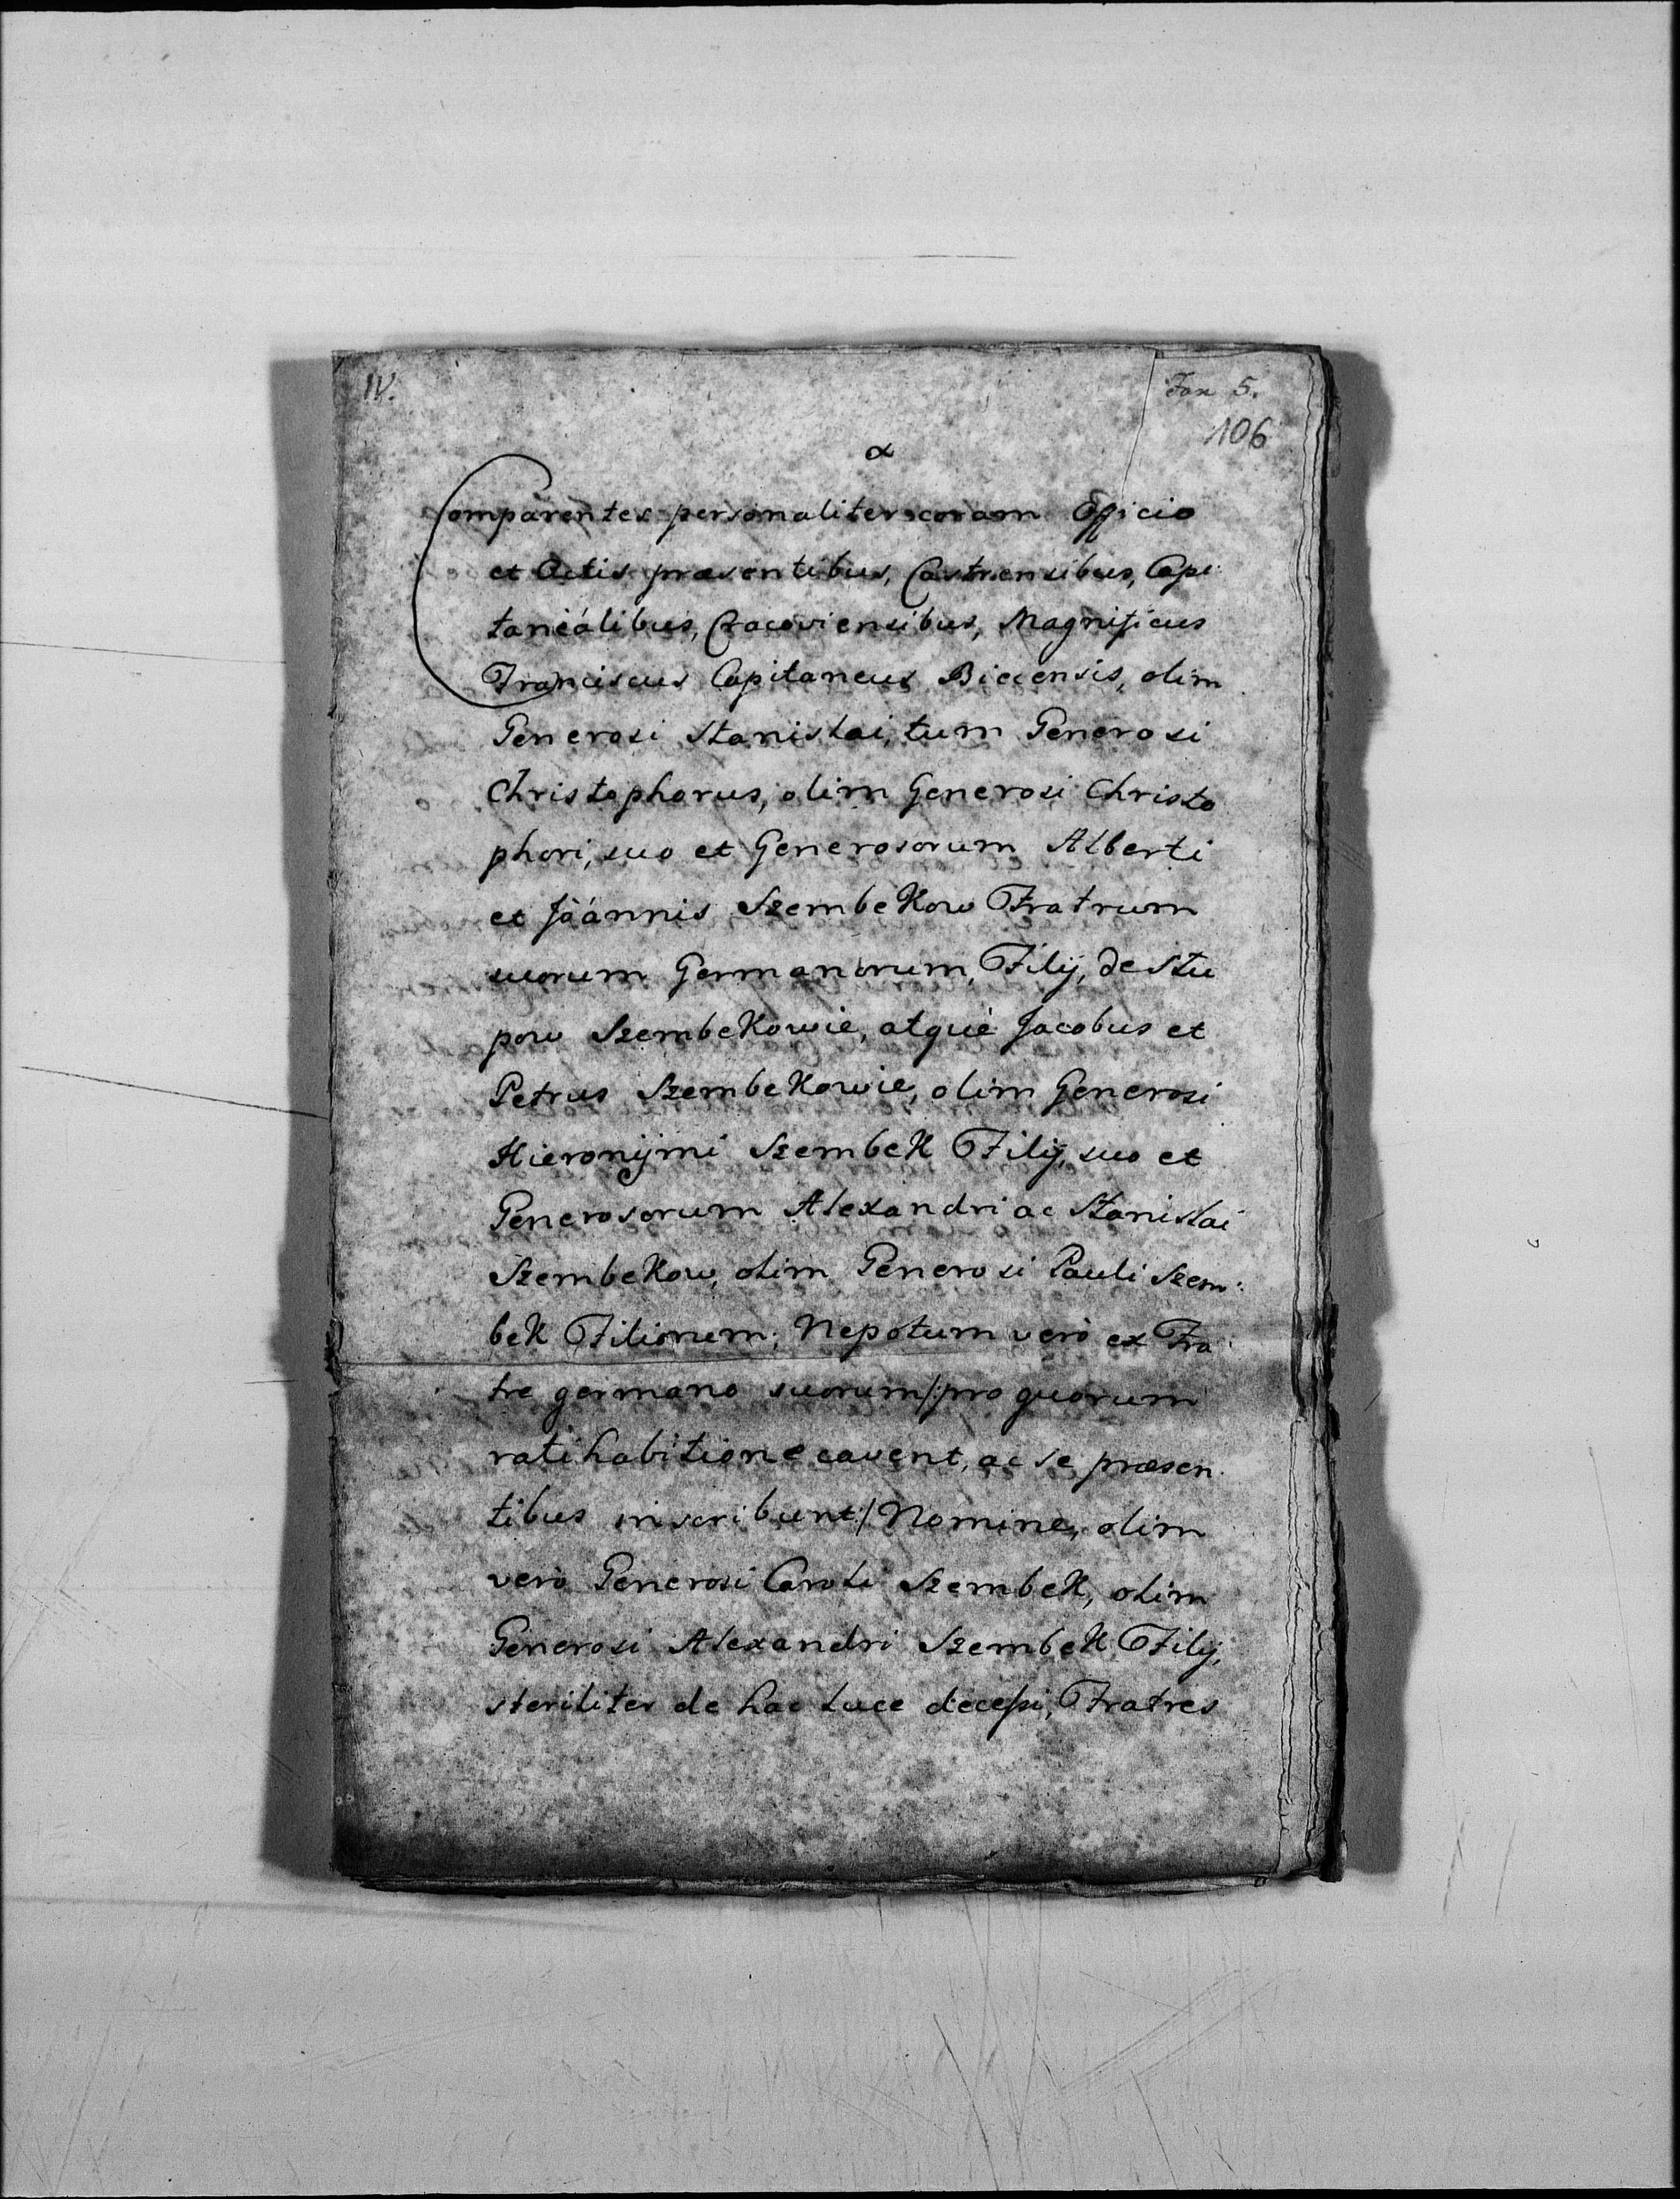 IV.
Fax 5.
106
α
Comparentes personaliter coram Officio
et Actis præsentibus, Castrensibus, Capi:
taneálibus, Cracoviensibus, Magnificus
Franciscus Capitaneus Biecensis, olim
Generosi Stanislai, tum Generosi
Christophorus, olim Generosi Christo
phori, suo et Generosorum Alberti
et Jóánnis Szembekow Fratrum
suorum Germanorum, Filij, de Stu
pow Szembekowie, atquè Jacobus et
Petrus Szembekowie, olim Generosi
Hieronÿmi Szembek Filij, suo et
Generosorum Alexandri ac Stanislai
Szembekow, olim Generosi Pauli Szem:
bek Filiorum; Nepotum verò ex Fra:
tre germano suorum /:pro quorum
ratihabitione cavent, ac se præsen
tibus inscribunt:/ Nomine, olim
verò Generosi Caroli Szembek, olim
Generosi Alexandri Szembek Filij,
steriliter de hac luce decessi, Fratres